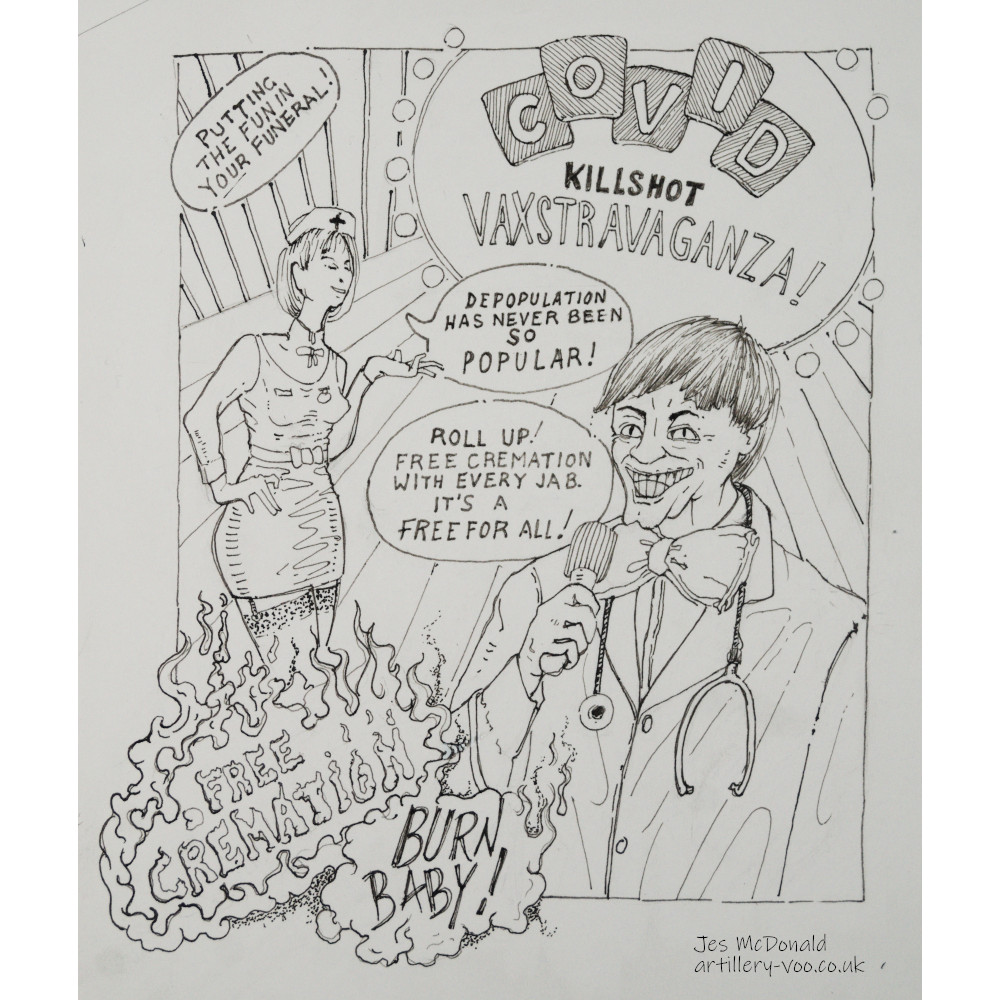 PUTTING
THE FUN IN
YOUR FUNERAL!
COVID
KILLSHOT
VAXSTRAVAGANZA!
DEPOPULATION
HAS NEVER BEEN
SO
POPULAR!
ROLL UP!
FREE CREMATION
WITH EVERY JAB.
IT'S A
FREE FOR ALL!
FREE
CREMATION
BURN
BABY!
Jes McDonald
artillery-voo.co.uk